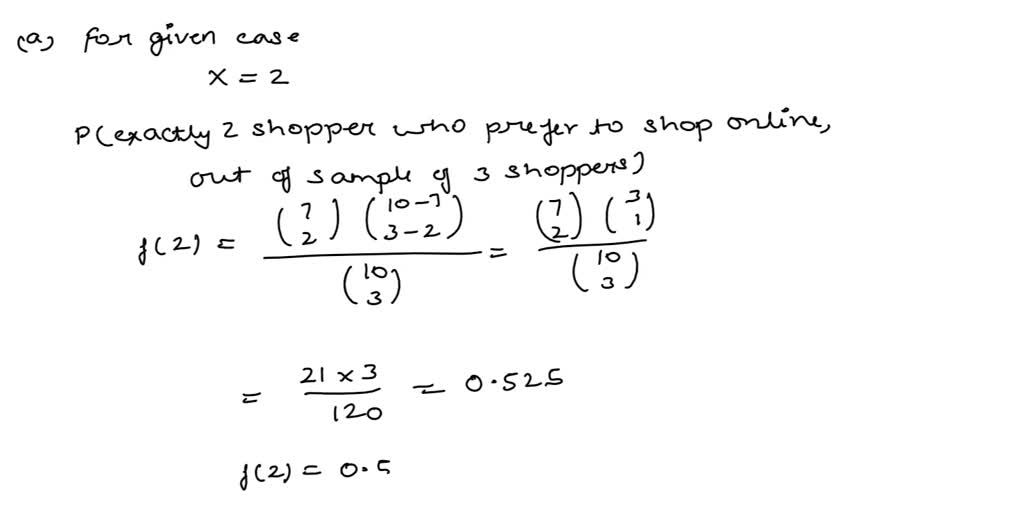 (a) for given case
x = 2
P(exactly 2 shopper who prefer to shop online,
out of sample of 3 shoppers)
f(2) = (7 2) (10-7 3-2) / (10 3) = (7 2) (3 1) / (10 3)
= 21 x 3 / 120 = 0.525
f(2) = 0.5